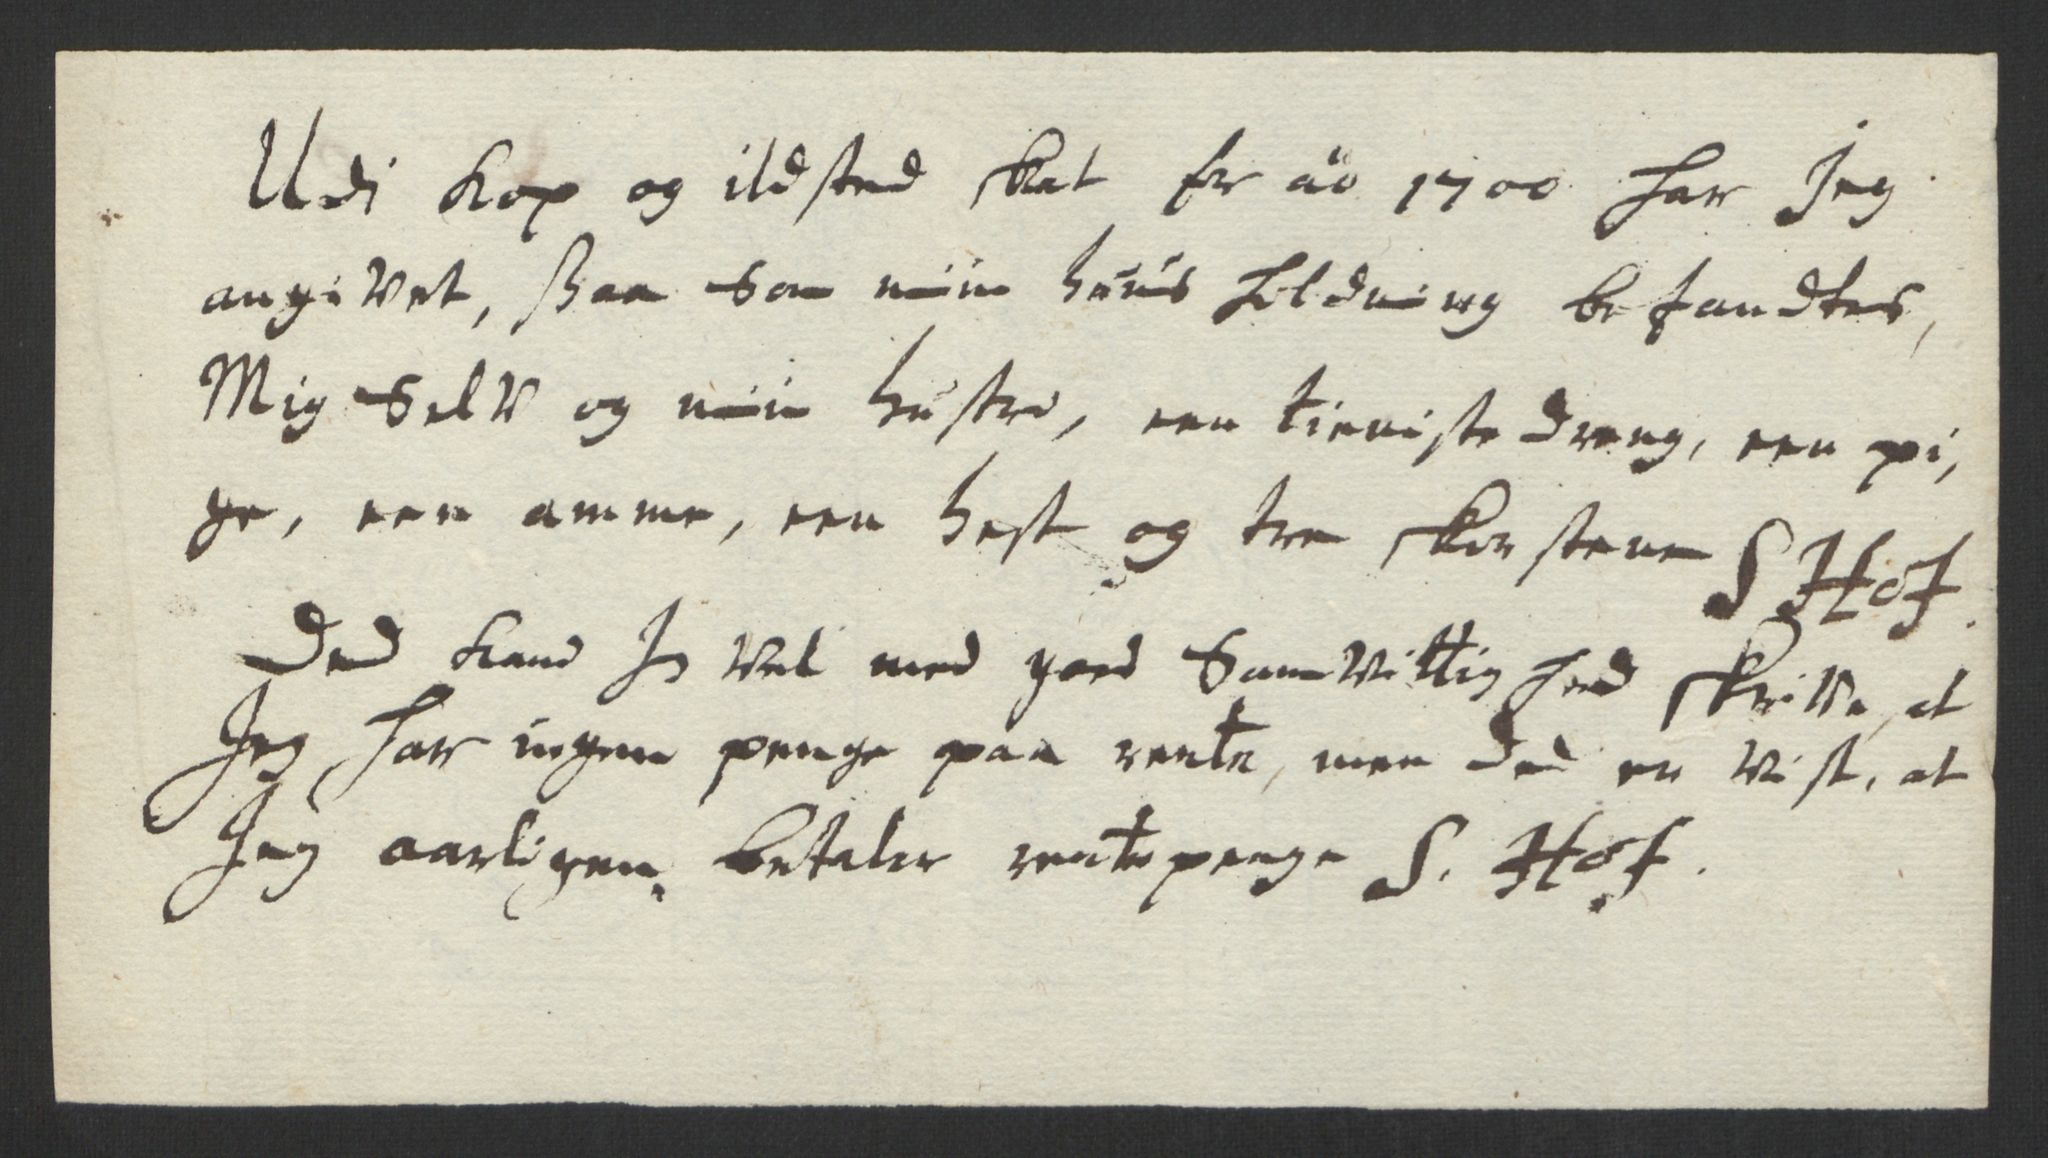 Udi Kop og ildsted skat for åo 1700 har Jeg
angivet, ßaa som miin huus holdning befandtes,
Mig Selv og miin hustro, een tieniste dreng, een pi,
ge, een amme, een hest og tre skorstene S Hof.
Ded kand Jeg vel med goed Samvittighed skrive, at
Jeg har ingen penge paa rente, men ded er vist, at
Jeg aarligen betaler rentepenge S. Hof.